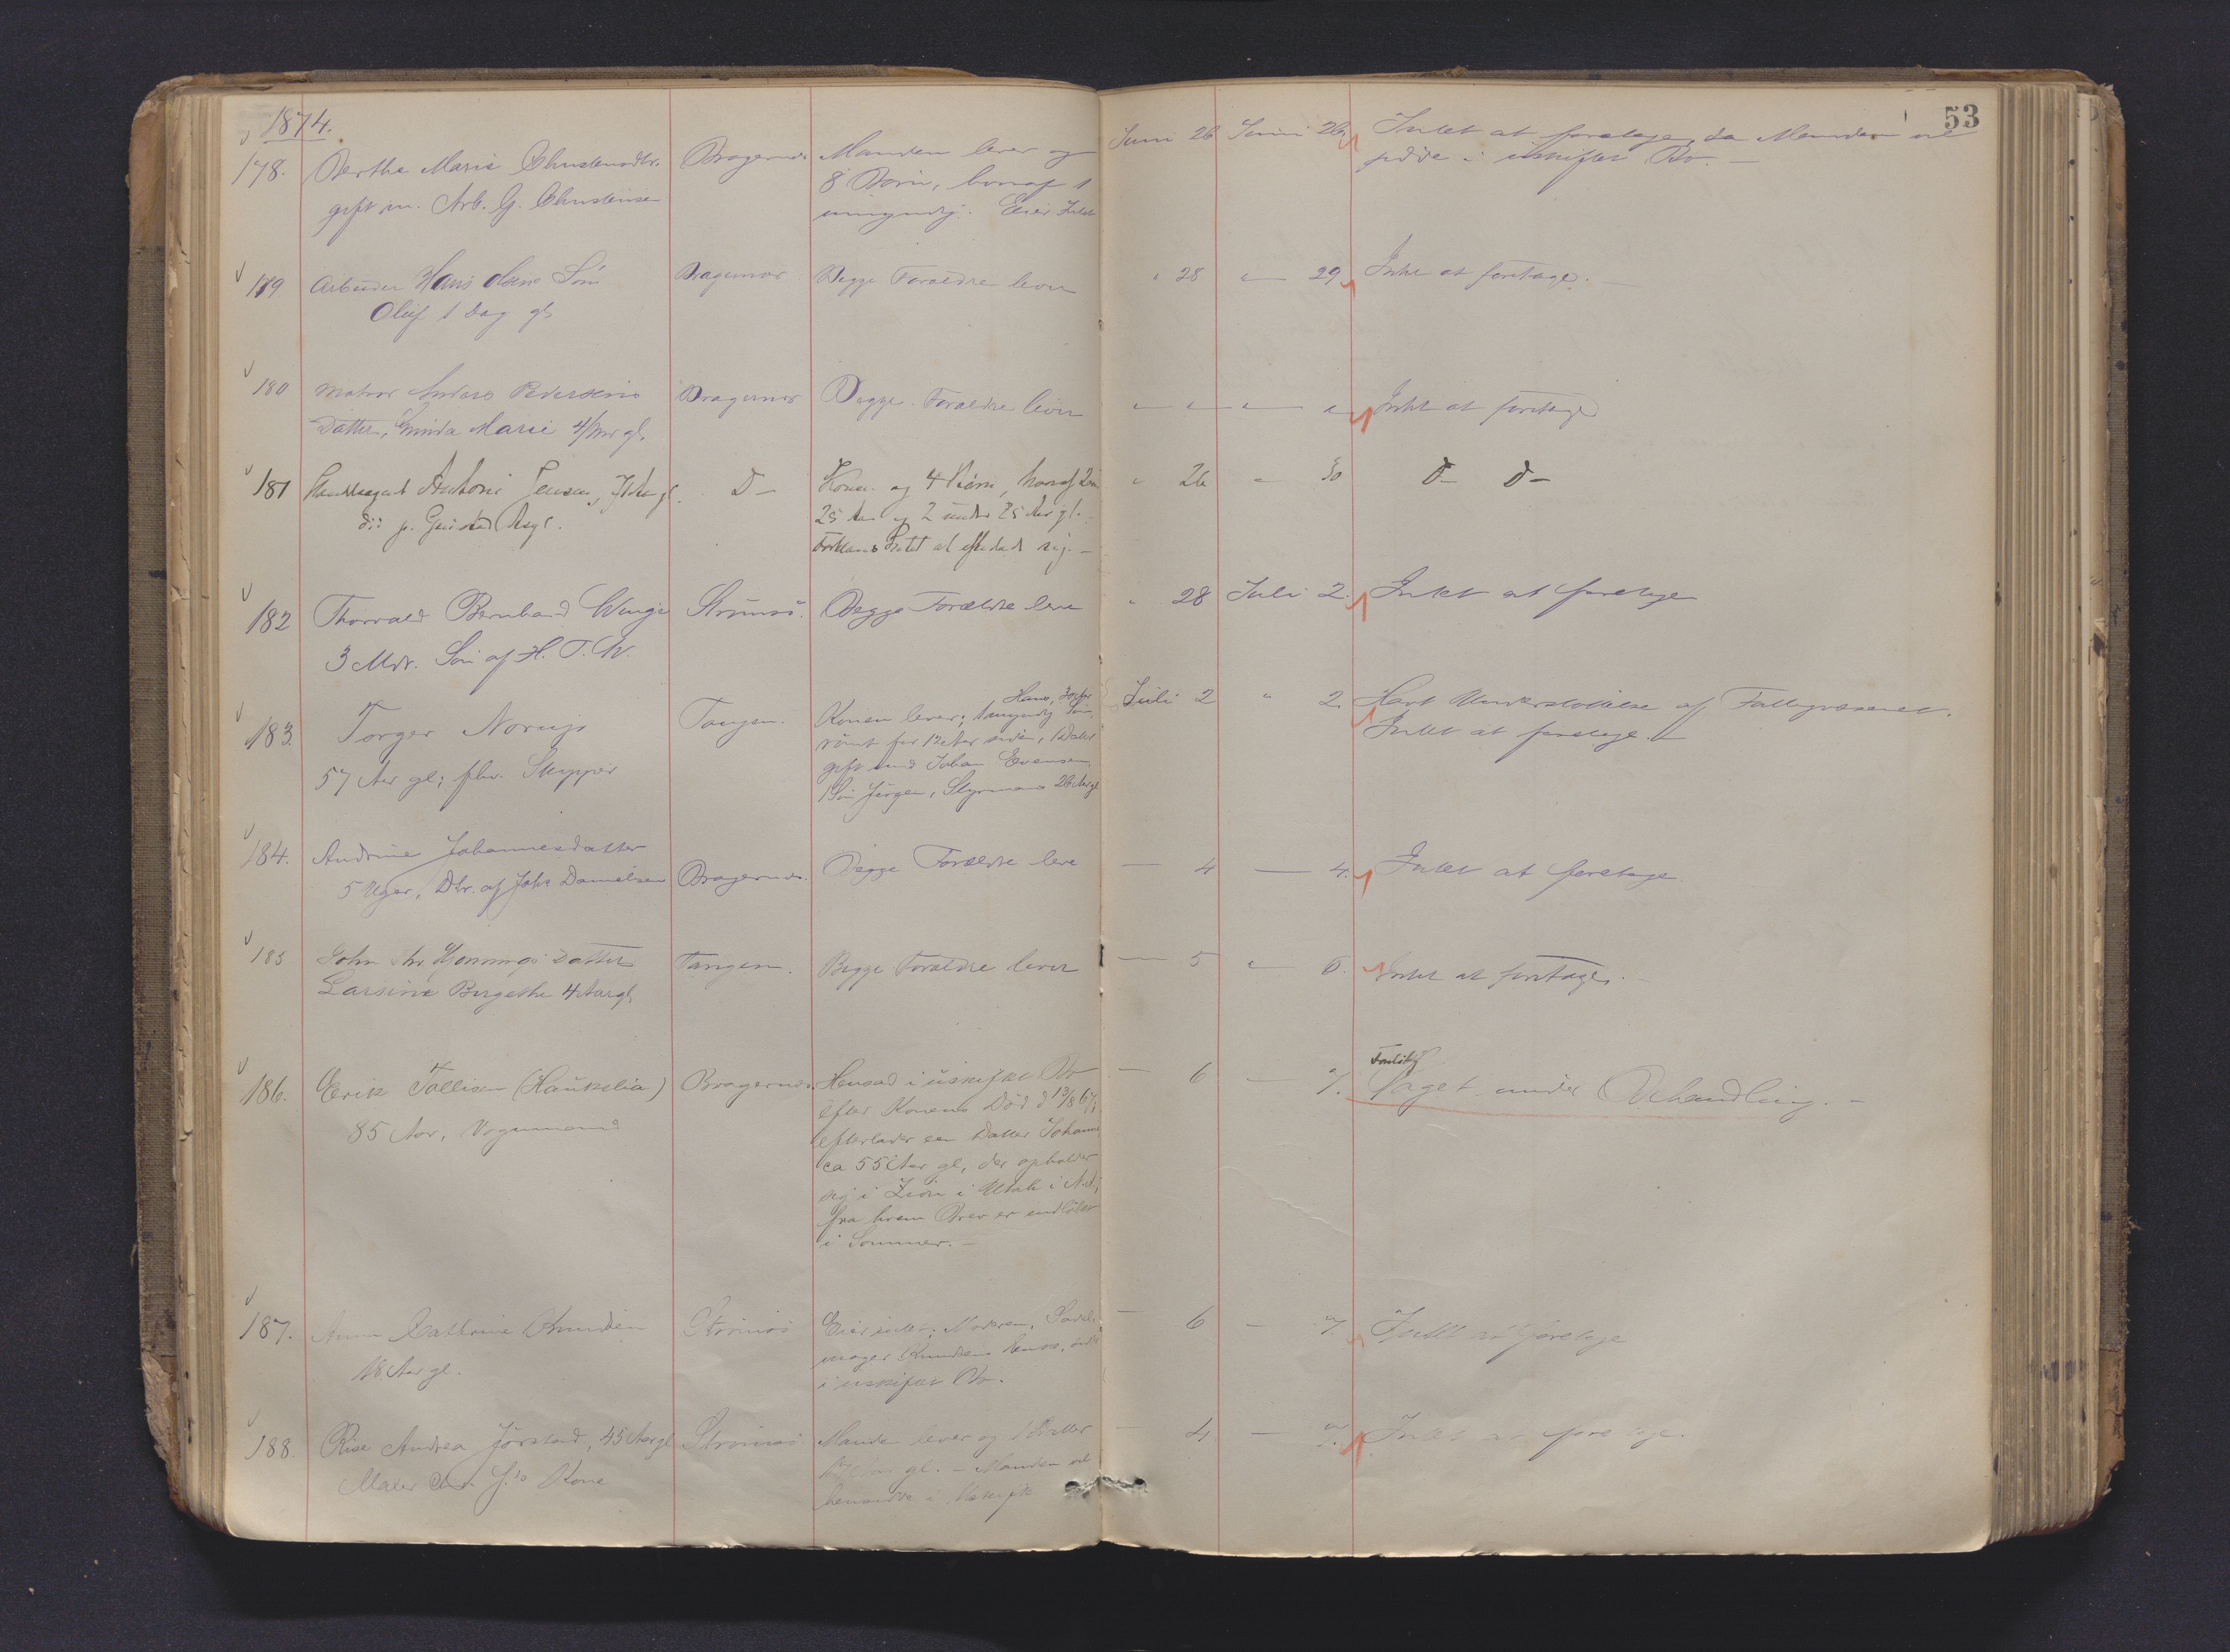 1874.
53
178. Berthe Marie Christensdtr.
gift m. Arb. G. Christensen
Bragernes
Manden lever og
8 Børn, hvoraf 1
umyndig. Eier Intet
Juni 26 Juni 26
Intet at foretage, da Manden vil
sidde i uskiftet Bo. —
179 Arbeider Hans Olsens Søn
Oluf 1 Dag gl.
Bragernes
Begge Forældre lever
" 28 " 29
Intet at foretage. —
180 Matros Anders Pedersens
Datter, Marie 4 gl.
Bragernes
Begge Forældre lever
Intet at foretage
181 Antoni Jensen,
D—
Konen og 4 Børn, hvoraf 2
25 Aar og 2 under 25 Aar gl.
Intet at efterlade sig. —
" 26 " 30
D— D—
182 Thorvald Bernhard Winge
3 Mdr. Søn af H. T. W.
Strømsø.
Begge Forældre leve
" 28 Juli 2.
Intet at foretage
183. Torger Norup
57 Aar gl; fhv. Skipper
Tangen.
Hans,
Konen lever; 1 myndig Søn
rømt for 12 Aar siden, 1 Datter
gift med Johan Evensen,
1 Søn Jørgen, Styrmand 26 Aar gl
Juli 2 " 2.
Havt Understøttelse af Fattigvæsenet.
Intet at foretage. —
184. Andrine Johannesdatter
5 Uger, Dtr. af Johs Danielsen
Bragernes.
Begge Forældre leve
— 4 — 4.
Intet at foretage
185 John Datter
Larsine Birgethe 4 Aar gl.
Tangen.
Begge Forældre lever
— 5 " 6.
Intet at foretage. —
186. Erik Tollisen (Haukelia)
85 Aar, Vognmand
Bragernes.
Hensad i uskiftet Bo
efter Konens Død d 13/8 67;
efterlader en Datter Johanne
ca 55 Aar gl, der opholder
sig i Zion i Utah i N.A;
fra hvem Brev er indløbet
i Sommer. —
— 6 — 7.
Foreløbig
Taget under Behandling. —
187. Anna Cathrine Knudsen
18 Aar gl.
Strømsø
Eier intet; Moderen, Sadel-
mager Knudsens Enke, sidder
i uskiftet Bo.
— 6 — 7.
Intet at foretage
188. Rise Andrea Jørstad, 45 Aar gl
Maler Chr. J.'s Kone
Strømsø
Manden lever og 1 Datter
gl. — Manden vil
hensidde i Uskifte
— 4 — 7.
Intet at foretage.